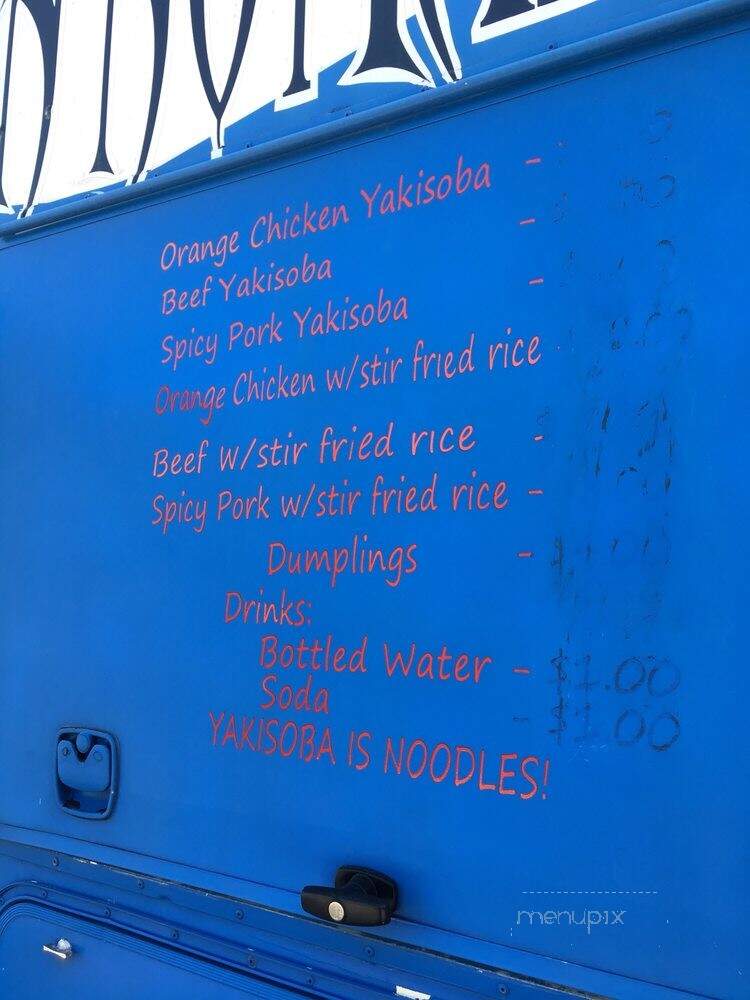 Orange Chicken Yakisoba -
Beef Yakisoba -
Spicy Pork Yakisoba -
Orange Chicken w/stir fried rice
Beef w/stir fried rice -
Spicy Pork w/stir fried rice -
Dumplings -
Drinks:
Bottled Water - $1.00
Soda - $1.00
YAKISOBA IS NOODLES!
menupix